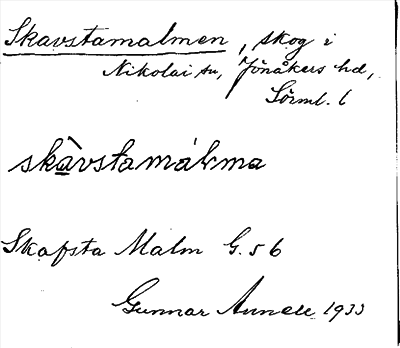 Skavstamalmen, skog i
Nikolai sn, Jönåkers hd,
Sörml. 6
skàvstamálma
Skafsta Malm G. 56
Gunnar 1933